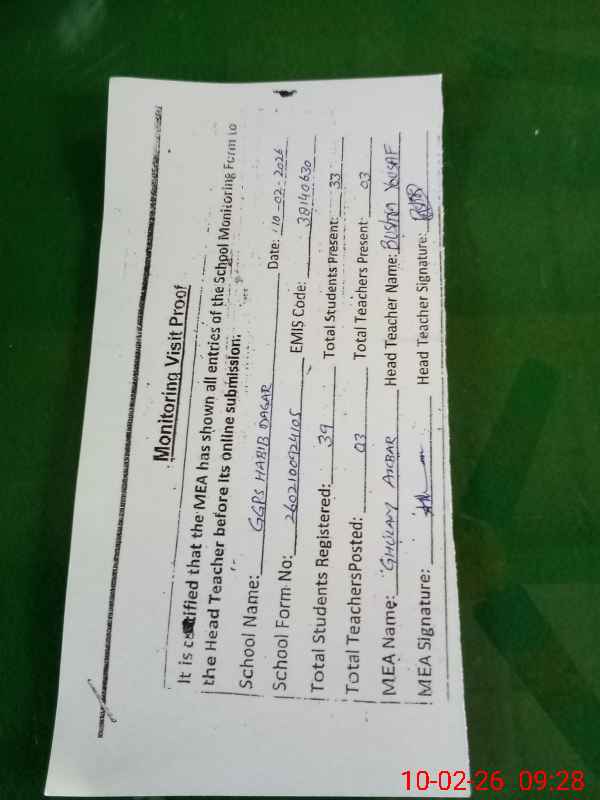 Monitoring Visit Proof
It is certified that the MEA has shown all entries of the School Monitoring Form to
the Head Teacher before its online submission.
School Name: GGPS HABIB DAGAR Date: 10-02-2026
School Form No: 2602100924105 EMIS Code: 38140630
Total Students Registered: 39 Total Students Present: 33
Total Teachers Posted: 03 Total Teachers Present: 03
MEA Name: GHULAM AKBAR Head Teacher Name: BUSHRA YOUSAF
MEA Signature: Head Teacher Signature:
10-02-26 09:28